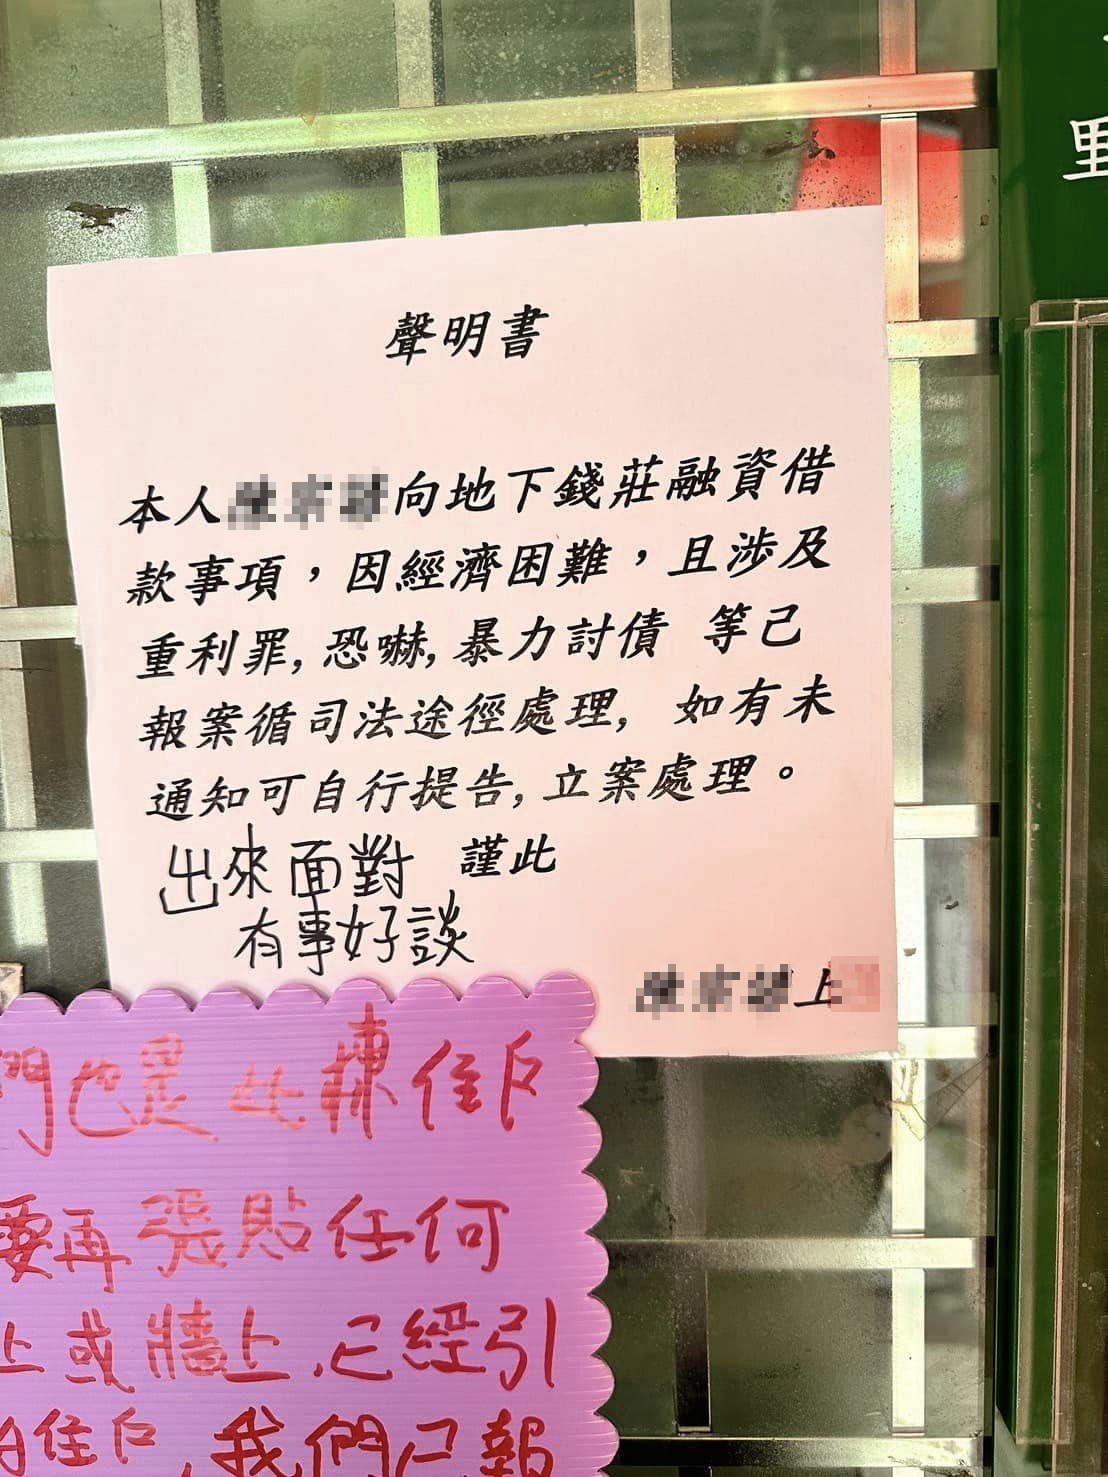 聲明書
本人向地下錢莊融資借
款事項，因經濟困難，且涉及
重利罪,恐嚇,暴力討債 等己
報案循司法途徑處理, 如有未
通知可自行提告,立案處理。
謹此
出來面對
有事好談
上
們也是此棟住戶
要再張貼任何
上或牆上.已經引
住戶,我們已報